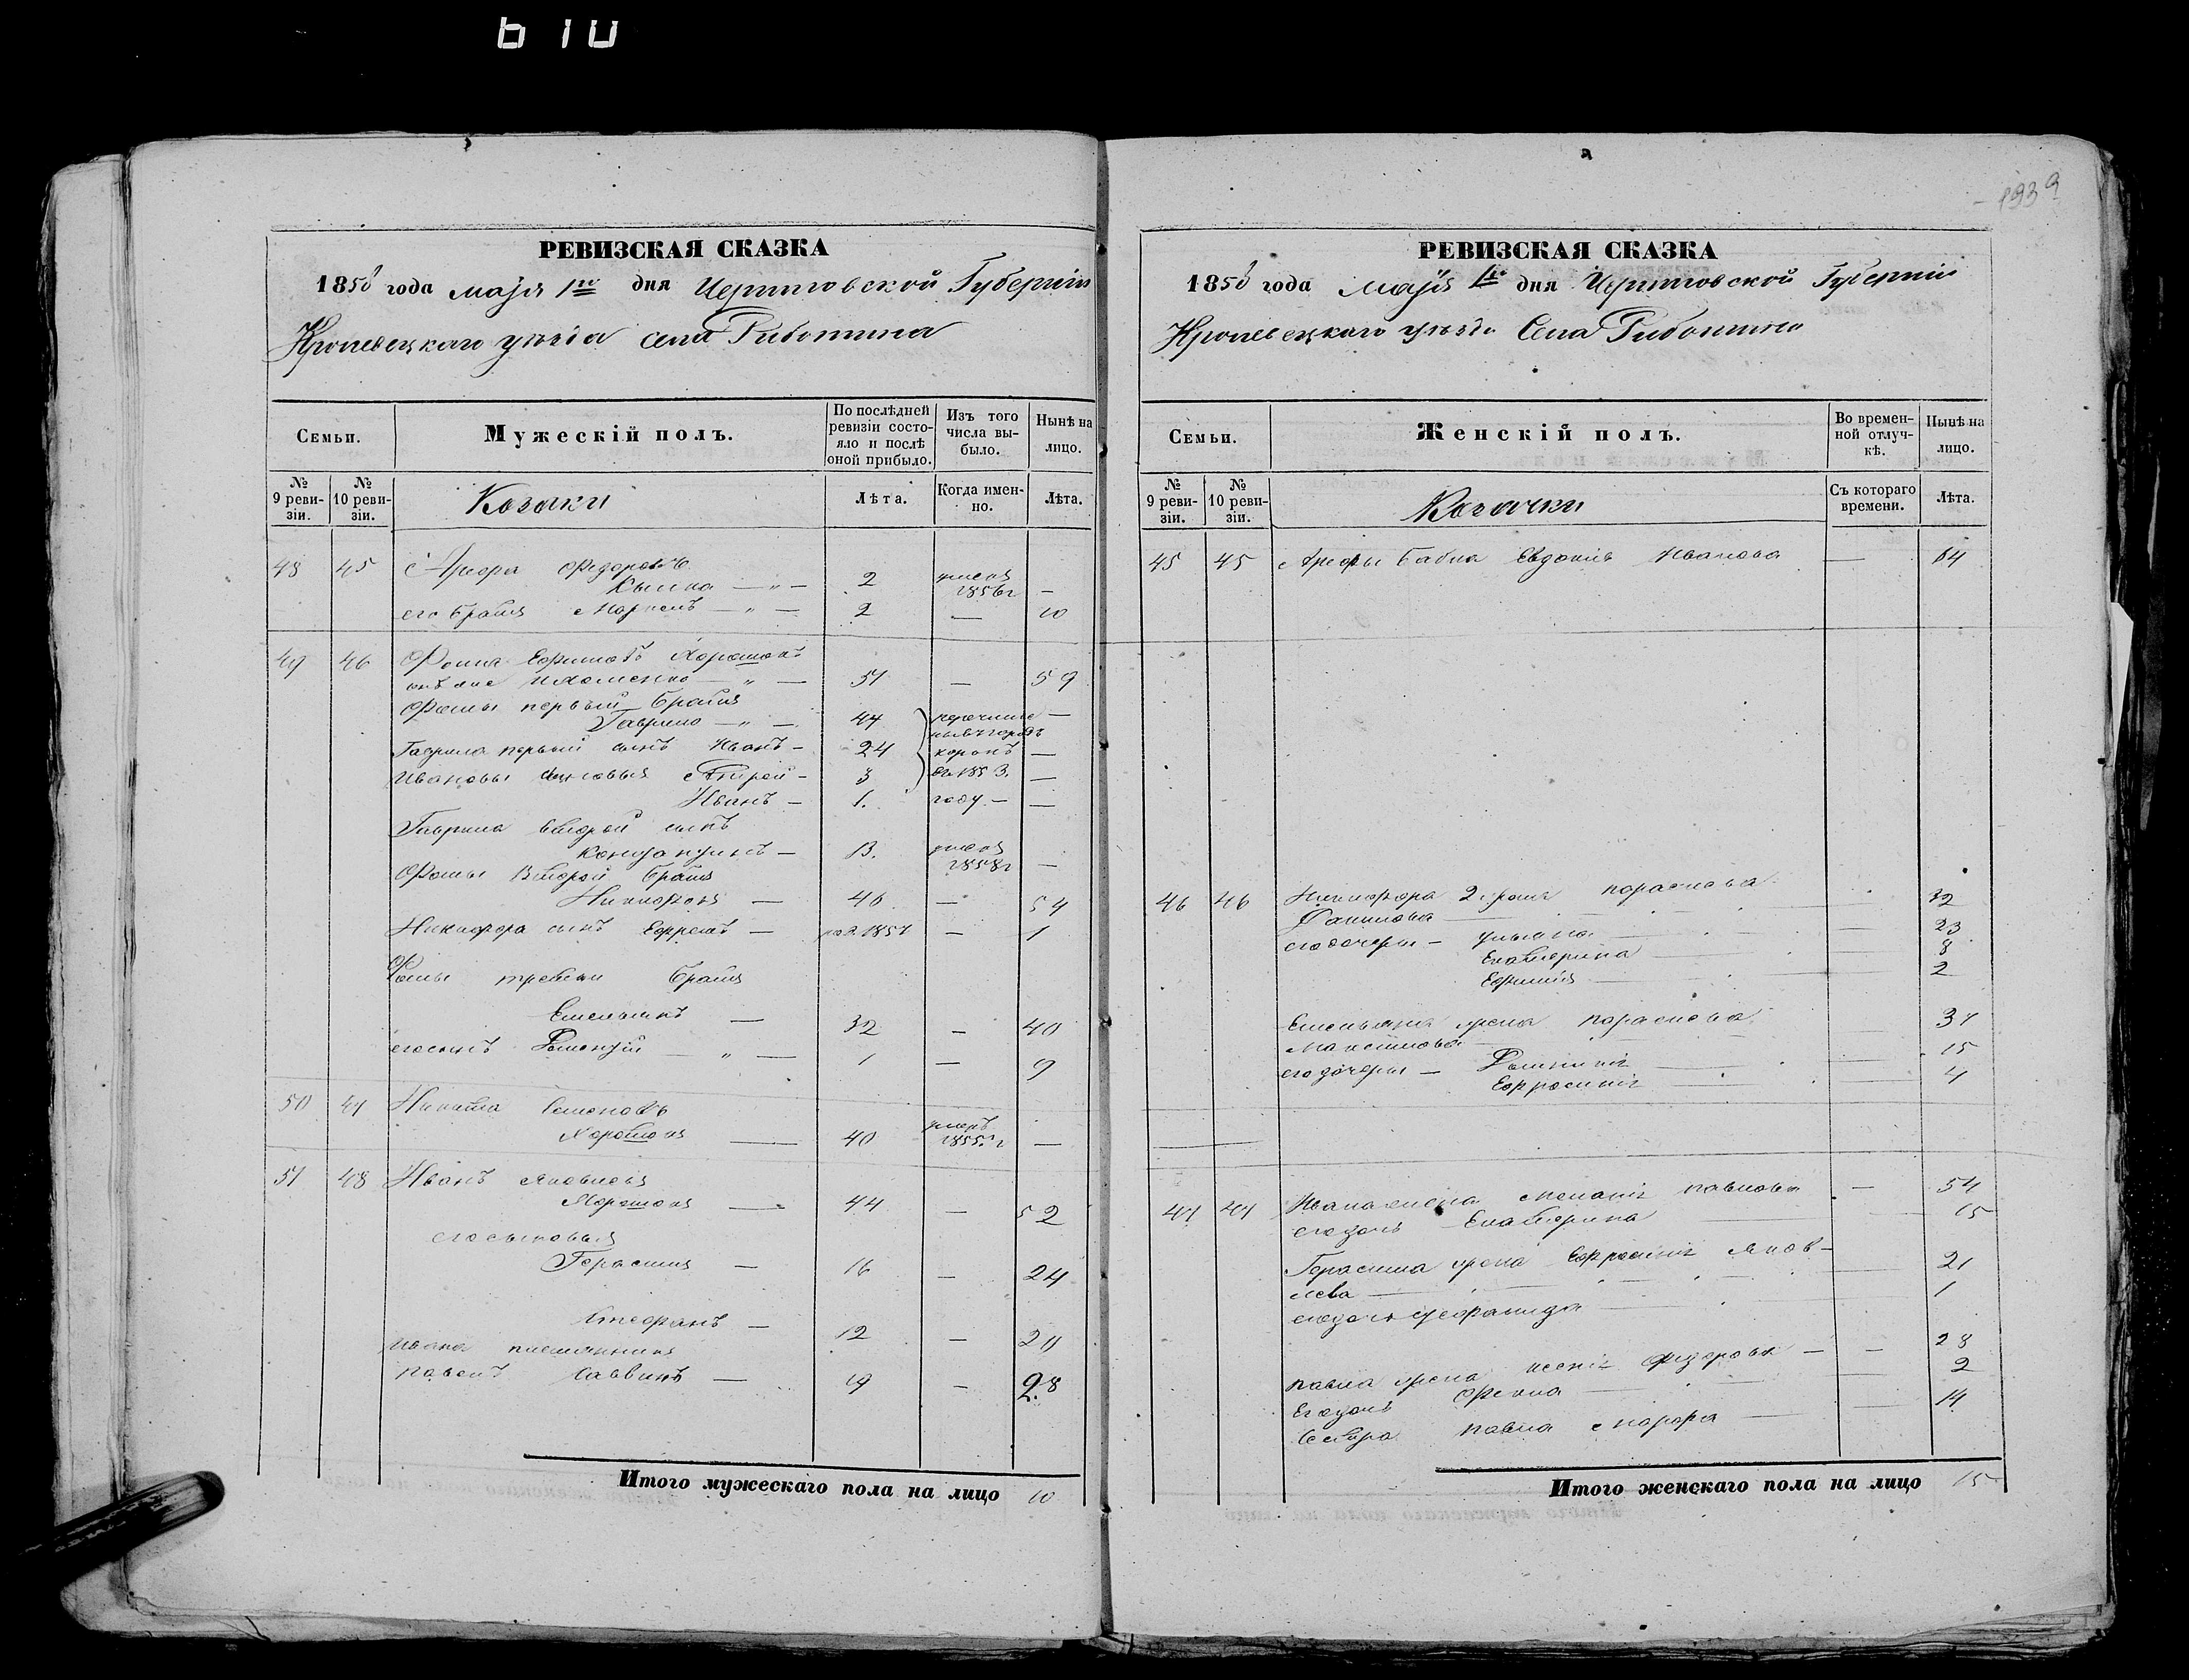 610
РЕВИЗСКАЯ СКАЗКА
1858 года маія 1го дня Черниговской Губерніи
Кролевецкаго уѣзда села Риботина
Семьи.
Мужескій полъ.
По послѣдней ревизіи состояло и послѣ оной прибыло.
Изъ того числа выбыло.
Нынѣ на лицо.
№ 9 ревизіи.
№ 10 ревизіи.
Козаки
Лѣта.
Когда именно.
Лѣта.
48 45 Арефа Федоровъ
2 умеръ 1856г —
его братъ 2 — 10
49 46 Фома Ефимовъ Хорошокъ
онъ же 51 — 59
Фомы первый братъ
Гаврило 44 —
Гаврила первый сынъ Иванъ — 24 —
Ивановы сыновья Андрей — 3 1853. —
Иванъ — 1. году — —
Гаврила второй сынъ
— 13. умеръ 1858г —
Фомы Второй братъ
Никифоръ — 46 — 54
Никифора сынъ Ефремъ — 1857 — 1
Фомы третій братъ
Емельянъ — 32 — 40
его сынъ — 1 — 9
50 47 Никита Семеновъ
Хорошокъ — 40 умеръ 1855г —
51 48 Иванъ Яковлевъ
Хорошокъ — 44 — 52
его сыновья
Герасимъ — 16 — 24
Стефанъ — 12 — 20
Ивана племянникъ
Павелъ Саввинъ — 19 — 28
Итого мужескаго пола на лицо 10
1939
РЕВИЗСКАЯ СКАЗКА
1858 года маія 1го дня Черниговской Губерніи
Кролевецкаго уѣзда Села Риботина
Семьи.
Женскій полъ.
Во временной отлучкѣ.
Нынѣ на лицо.
№ 9 ревизіи.
№ 10 ревизіи.
Козачки
Съ котораго времени.
Лѣта.
45 45 Арефы бабка Евдокія Иванова — 64
46 46 Никифора 2 жена Параскева
Данилова — 32
его дочери — Ульяна — 23
Екатерина — 8
Ефимія — 2
Емельяна жена Параскева
Максимова — 37
его дочери — 15
Ефросинія — 4
47 47 Ивана жена Меланія Павлова — 54
его дочь Екатерина 15
Герасима жена Ефросинія Яков-
лева — 21
его дочь 1
Павла жена Ксенія Федорова — 28
Его дочь Фекла — 2
Сестра Павла Марфа — 14
Итого женскаго пола на лицо 15